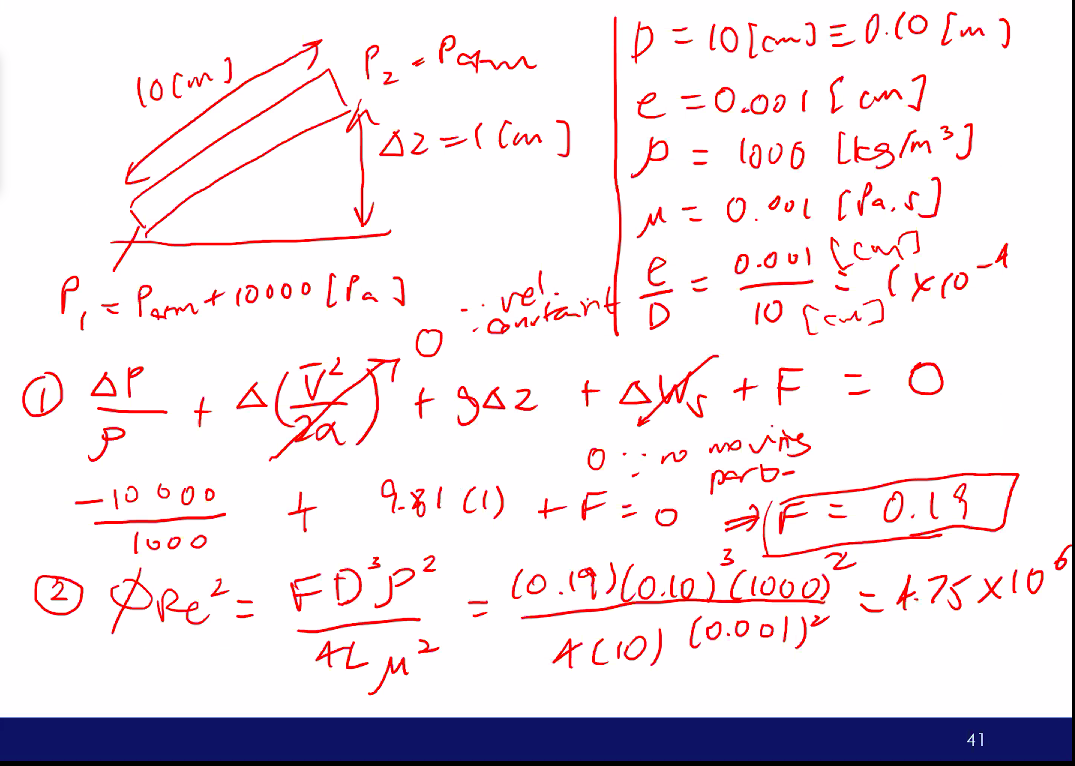 10 [m]
P₂ = Patm
Δz = 1 [m]
P₁ = Patm + 10000 [Pa]
D = 10 [cm] ≡ 0.10 [m]
e = 0.001 [cm]
ρ = 1000 [kg/m³]
μ = 0.001 [Pa.s]
e/D = 0.001 [cm] / 10 [cm] = 1 × 10⁻⁴
0 ∵ vel. constant
① ΔP/ρ + Δ(V̄²/2α) + gΔz + ΔWs + F = 0
0 ∵ no moving parts
-10000/1000 + 9.81 (1) + F = 0 ⇒ F = 0.19
② φRe² = FD³ρ²/4Lμ² = (0.19)(0.10)³(1000)²/4(10)(0.001)² = 4.75 × 10⁶
41